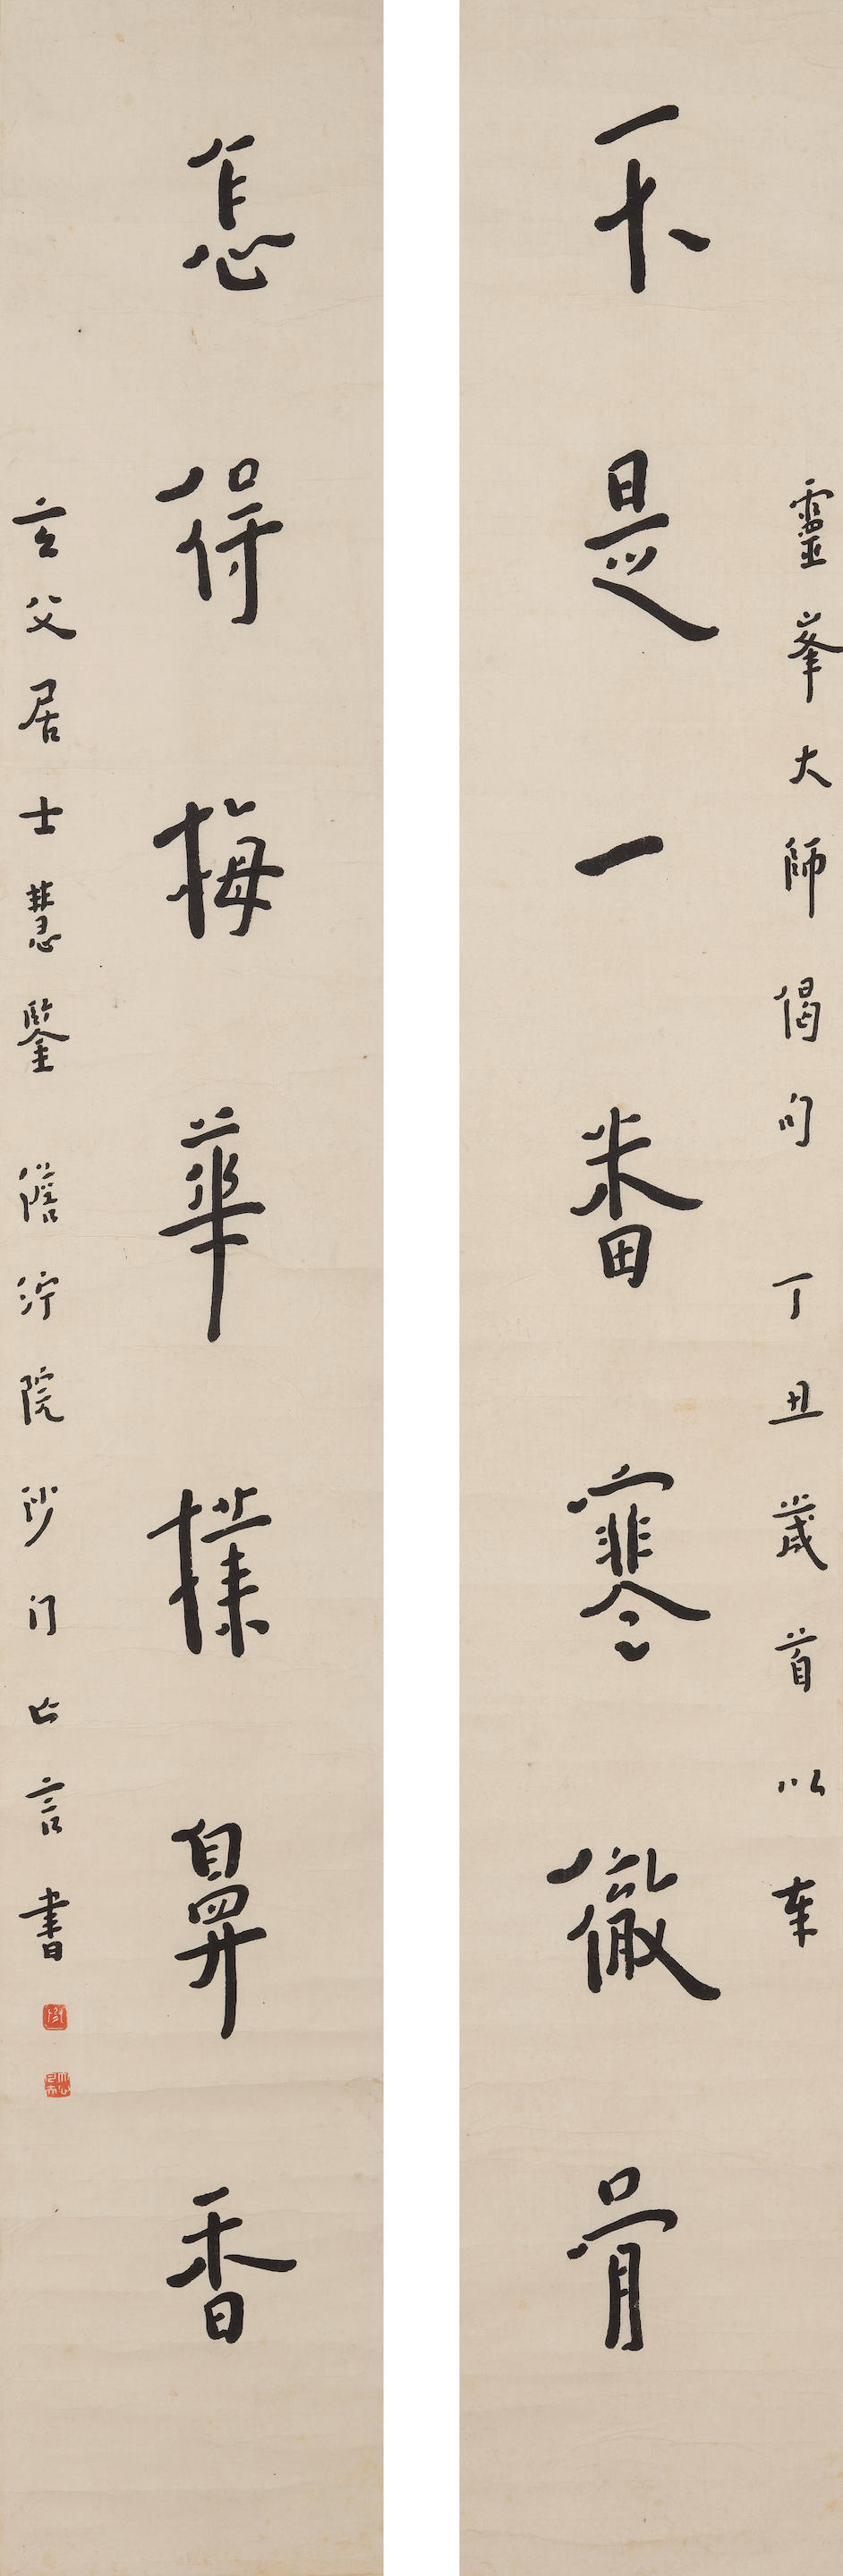 靈峯大師偈句 丁丑歲首以奉
不是一番寒徹骨
怎得梅華撲鼻香
玄父居士慧鑒 澹泞院沙门亡言書